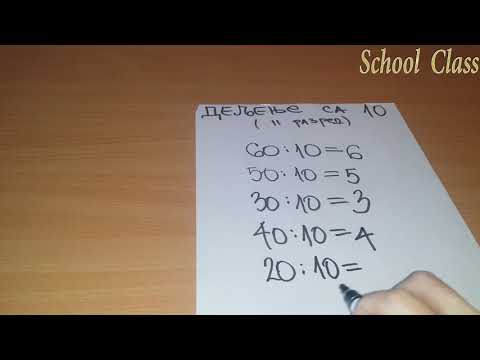 School Class
ДЕЉЕЊЕ СА 10
( II РАЗРЕД)
60:10=6
50:10=5
30:10=3
40:10=4
20:10=